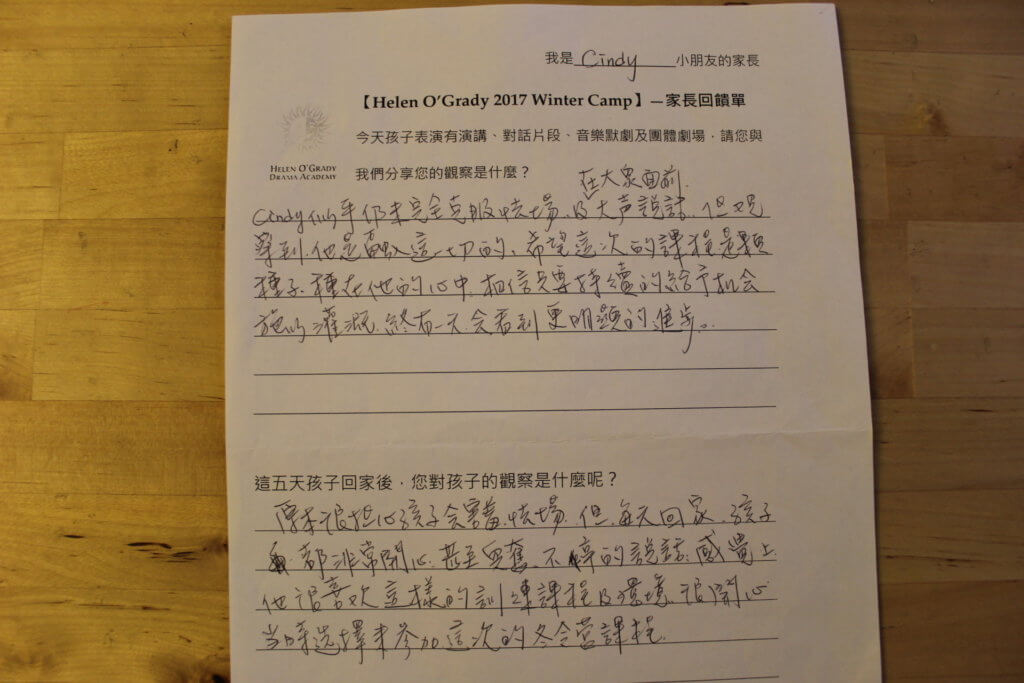 我是 Cindy 小朋友的家長
【Helen O'Grady 2017 Winter Camp】—家長回饋單
HELEN O'GRADY
DRAMA ACADEMY
今天孩子表演有演講、對話片段、音樂默劇及團體劇場,請您與
我們分享您的觀察是什麼?
在大眾面前
Cindy 仍未完全克服怯場、及大声說話、但觀
察到他是喜歡這一切的、希望這次的課程是顆
種子、種在他的心中、相信只要持續的給予机会
施以灌溉、終有一天会看到更明顯的進步。
這五天孩子回家後,您對孩子的觀察是什麼呢?
原本很担心孩子会害羞、怯場、但、每天回家、孩子
都非常開心、甚至興奮、不停的說話、感覺上
他很喜欢這樣的訓練課程及環境、很開心
當時選擇來参加這次的冬令營課程.